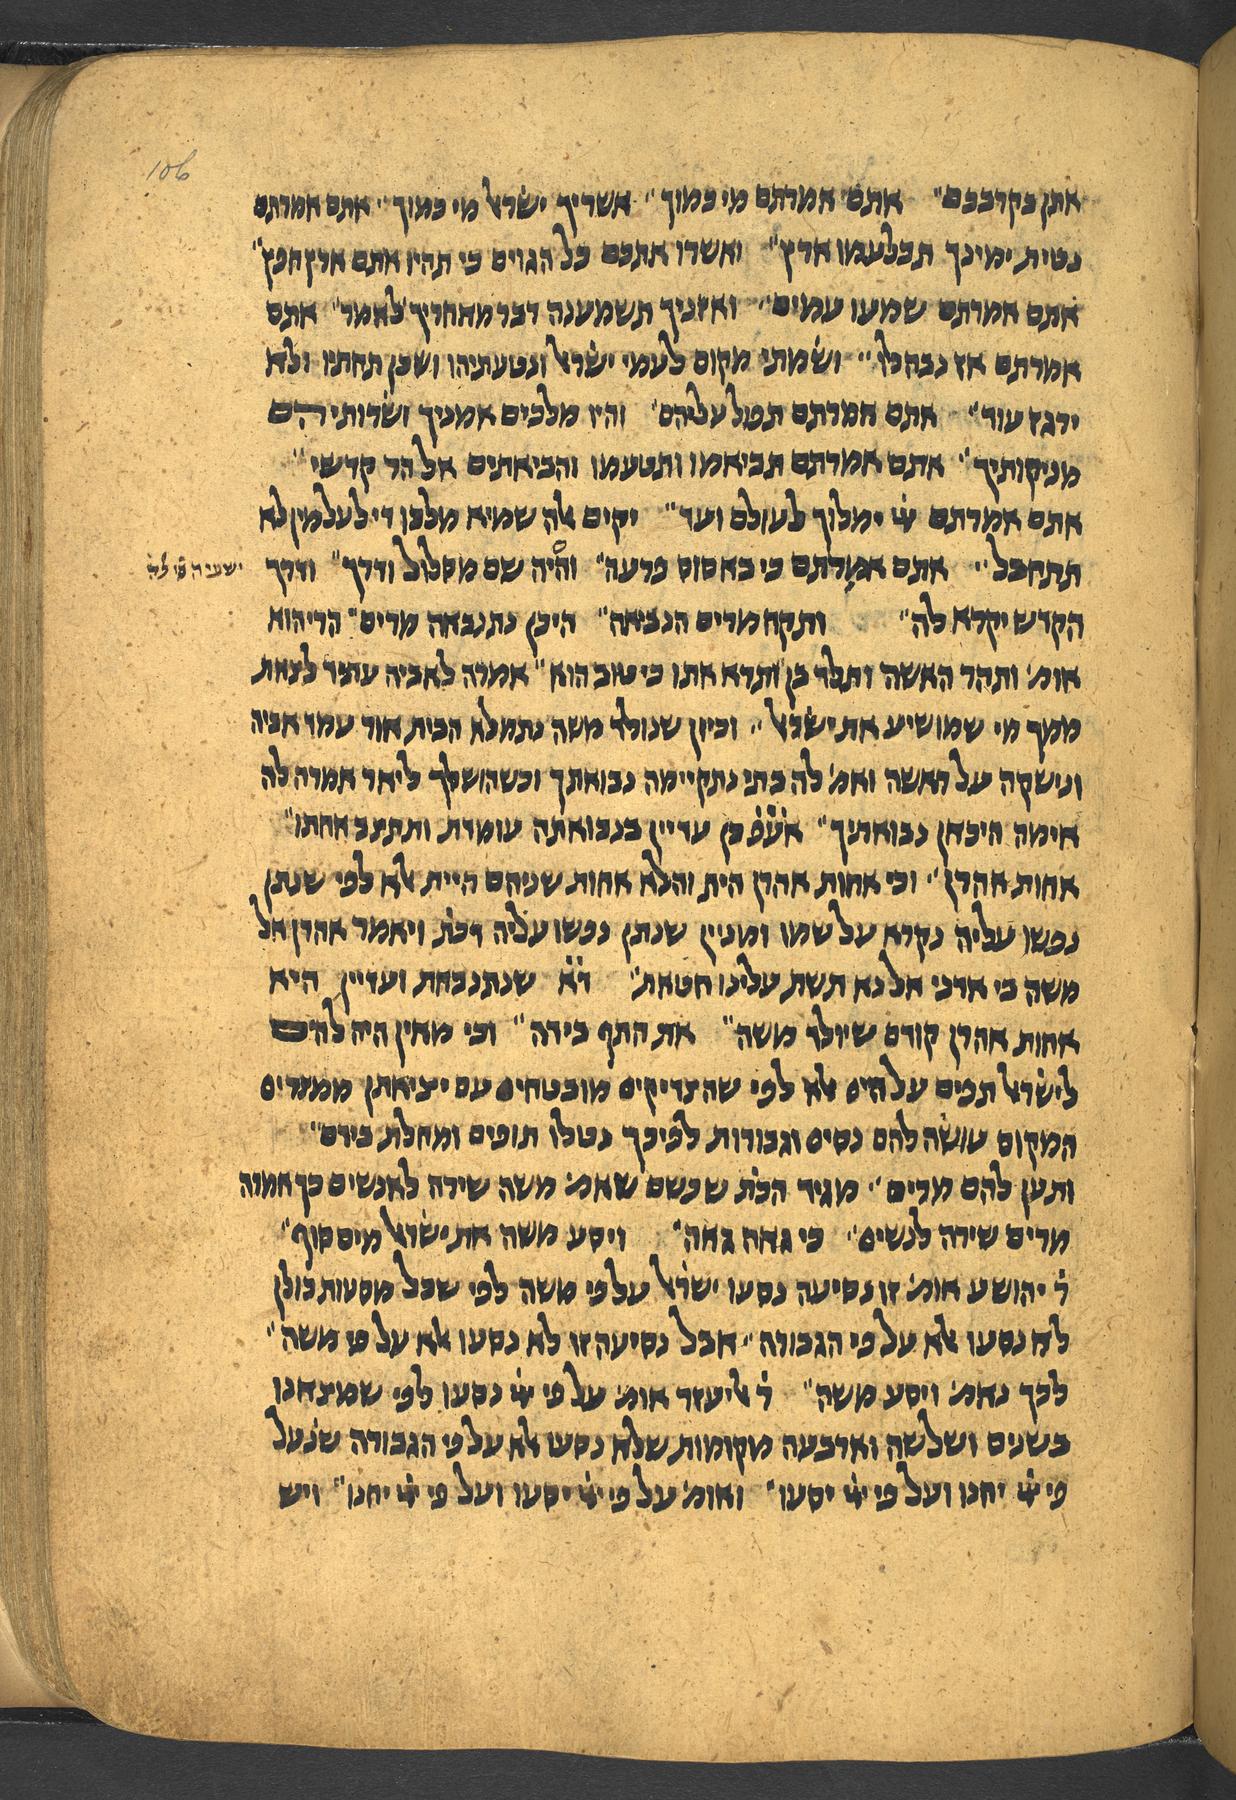 106
אתן בקרבכם" אתם אמרתם מי כמוך" אשריך ישר׳אל מי כמוך" אתם אמרתם
נטית ימינך תבלעמו ארץ" ואשרו אתכם כל הגוים כי תהיו אתם ארץ חפץ"
אתם אמרתם שמעו עמים" ואזניך תשמענה דבר מאחריך לאמר" אתם
אמרתם אז נבהלו" ושמתי מקום לעמי ישראל ונטעתיהו ושכן תחתיו ולא
ירגז עוד" אתם אמרתם תפול עליהם" והיו מלכים אמניך ושרותיהם
מניקותיך" אתם אמרתם תביאמו ותטעמו והביאתים אל הר קדשי"
אתם אמרתם ײ ימלוך לעולם ועד" יקים אלה שמיא מלכו די לעלמין לא
תתחבל" אתם אמרתם כי בא סוס פרעה" והיה שם מסלול ודרך" ודרך
ישעיה סי׳ לה
הקדש יקרא לה" ותקח מרים הנביאה" היכן נתנבאה מרים" הרי הוא
אומ׳ ותהר האשה ותלד בן ותרא אתו כי טוב הוא" אמרה לאביה עתיד לצאת
ממך מי שמושיע את ישראל" וכיון שנולד משה נתמלא הבית אור עמד אביה
ונישקה על ראשה ואמ׳ לה בתי נתקיימה נבואתך וכשהושלך ליאר אמרה לה
אימה היכאן נבואתיך" אעפ כן עדיין בנבואתה עומדת ותתצב אחתו"
אחות אהרן" וכי אחות אהרן הית והלא אחות שניהם היית אלא לפי שנתן
נפשו עליה נקרא על שמו ומניין שנתן נפשו עליה דכת׳ ויאמר אהרן אל
משה בי אדני אל נא תשת עלינו חטאת" דא שנתנבאת ועדיין היא
אחות אהרן קודם שיולד משה" את התף בידה" וכי מאין היה להם
לישראל תפים על הים אלא לפי שהצדיקים מובטחים עם יציאתן ממצרים
המקום עושה להם נסים וגבורות לפיכך נטלו תופים ומחלת בידם"
ותען להם מרים" מגיד הכת׳ שכשם שאמ׳ משה שירה לאנשים כך אמרה
מרים שירה לנשים" כי גאה גאה" ויסע משה את ישראל מים סוף"
ר׳ יהושע אומ׳ זו נסיעה נסעו ישראל על פי משה לפי שכל מסעות כולן
לא נסעו אלא על פי הגבורה" אבל נסיעה זו לא נסעו אלא על פי משה"
לכך נאמ׳ ויסע משה" ר׳ אליעזר אומ׳ על פי ײ נסעו לפי שמצאנו
בשנים ושלשה וארבעה מקומות שלא נסעו אלא על פי הגבורה שנ׳ על
פי ײ יחנו ועל פי ײ יסעו" ואומ׳ על פי ײ יסעו ועל פי ײ יחנו" ויש